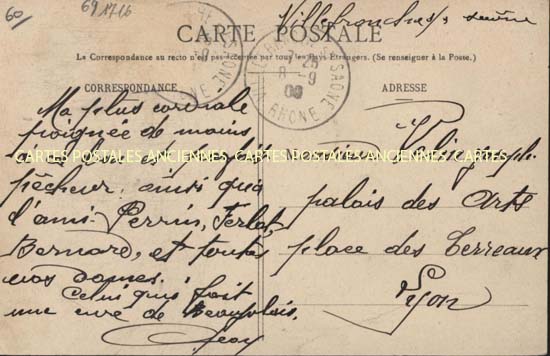 60
691716
Villefranche s/s
CARTE POSTALE
La Correspondance au recto n'est pas acceptée par tous les Pays Étrangers. (Se renseigner à la Poste.)
CORRESPONDANCE
Ma plus cordiale
poignée de mains
pêcheur, ainsi qu'à
l'ami Perrin, Ferlat,
Bernard, et toutes
vos dames.
Celui qui fait
une cure de Beaujolais.
ADRESSE
Monsieur
palais des Arts
place des Terreaux
Lyon
SAONE
RHONE
8-9
CARTES POSTALES ANCIENNES
CARTES POSTALES ANCIENNES
CARTES POSTALES ANCIENNES